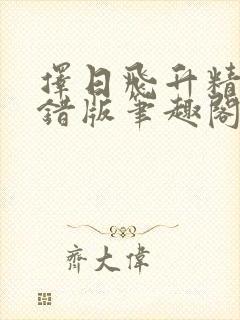 擇日飛升精
錯版筆趣閣
齊大偉